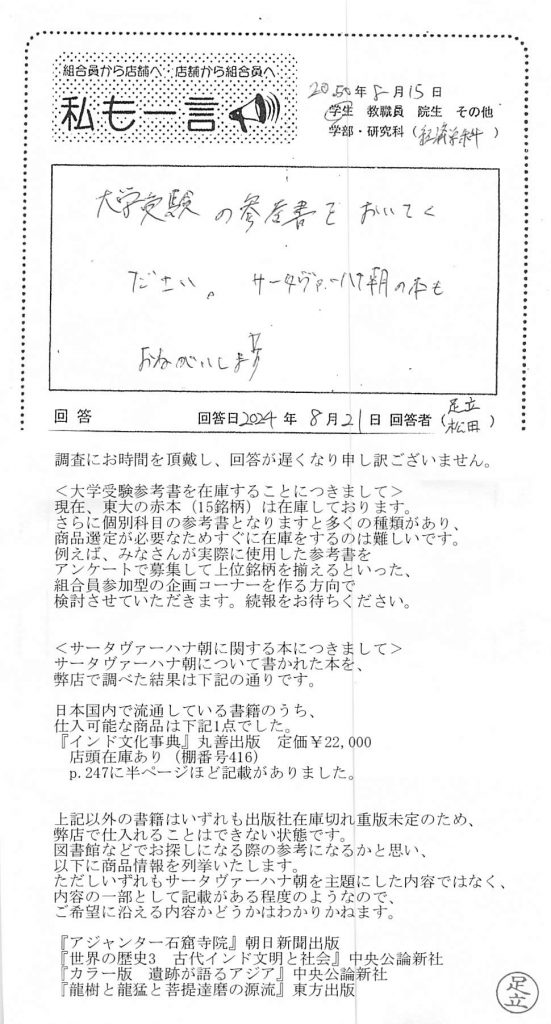 組合員から店舗へ・店舗から組合員へ
私も一言
2050年8月15日
学生 教職員 院生 その他
学部・研究科(経済学科)
大学受験の参考書をおいてく
ださい。サータヴァーハナ朝の本も
おねがいします
回答 回答日2024年8月21日 回答者(足立 松田)
調査にお時間を頂戴し、回答が遅くなり申し訳ございません。
＜大学受験参考書を在庫することにつきまして＞
現在、東大の赤本（15銘柄）は在庫しております。
さらに個別科目の参考書となりますと多くの種類があり、
商品選定が必要なためすぐに在庫をするのは難しいです。
例えば、みなさんが実際に使用した参考書を
アンケートで募集して上位銘柄を揃えるといった、
組合員参加型の企画コーナーを作る方向で
検討させていただきます。続報をお待ちください。
＜サータヴァーハナ朝に関する本につきまして＞
サータヴァーハナ朝について書かれた本を、
弊店で調べた結果は下記の通りです。
日本国内で流通している書籍のうち、
仕入可能な商品は下記1点でした。
『インド文化事典』丸善出版　定価￥22,000
店頭在庫あり（棚番号416）
p.247に半ページほど記載がありました。
上記以外の書籍はいずれも出版社在庫切れ重版未定のため、
弊店で仕入れることはできない状態です。
図書館などでお探しになる際の参考になるかと思い、
以下に商品情報を列挙いたします。
ただしいずれもサータヴァーハナ朝を主題にした内容ではなく、
内容の一部として記載がある程度のようなので、
ご希望に沿える内容かどうかはわかりかねます。
『アジャンター石窟寺院』朝日新聞出版
『世界の歴史3　古代インド文明と社会』中央公論新社
『カラー版　遺跡が語るアジア』中央公論新社
『龍樹と龍猛と菩提達磨の源流』東方出版
足立